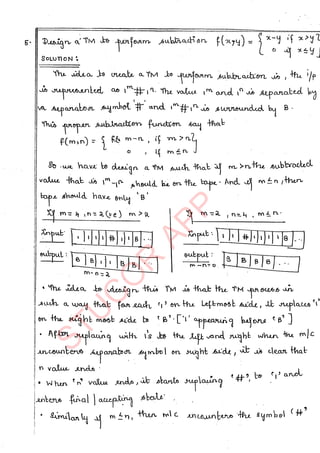 5. Design a TM to perform subtraction f(x,y) = { x-y if x>y
0 if x≤y }
SOLUTION :
The idea to create a TM to perform subtraction is, the i/p
is represented as 1^m # 1^n. The value 1^m and 1^n is separated by
separator symbol '#' and 1^m # 1^n is surrounded by B.
This proper subtraction function say that
f(m,n) = { m-n, if m>n
0 , if m≤n
So we have to design a TM such that if m>n the subtracted
value that is 1^m-1^n should be on the tape. And if m≤n, then
tape should have only 'B'
If m=4, n=2 (ve) m>n
If m=2, n=4, m≤n.
Input: 1 1 1 1 # 1 1 B ..
Input: 1 1 # 1 1 1 1 B ..
output: B B 1 1 B B ...
output: B B B B ...
m-n=2
m-n=0
• The idea to design this TM is that the TM process in
such a way that for each '1' on the leftmost side, it replaces '1'
on the right most side to 'B'. ['1' appearing before 'B']
• After replacing with 1's to the left and right when the m/c
encounters separator symbol on right side, it is clear that
n value ends.
• When 'n' value ends, it starts replacing '#', to '1' and
enters final | accepting state.
• Similarly if m≤n, then m/c encounters the symbol '#'
STUCOR APP